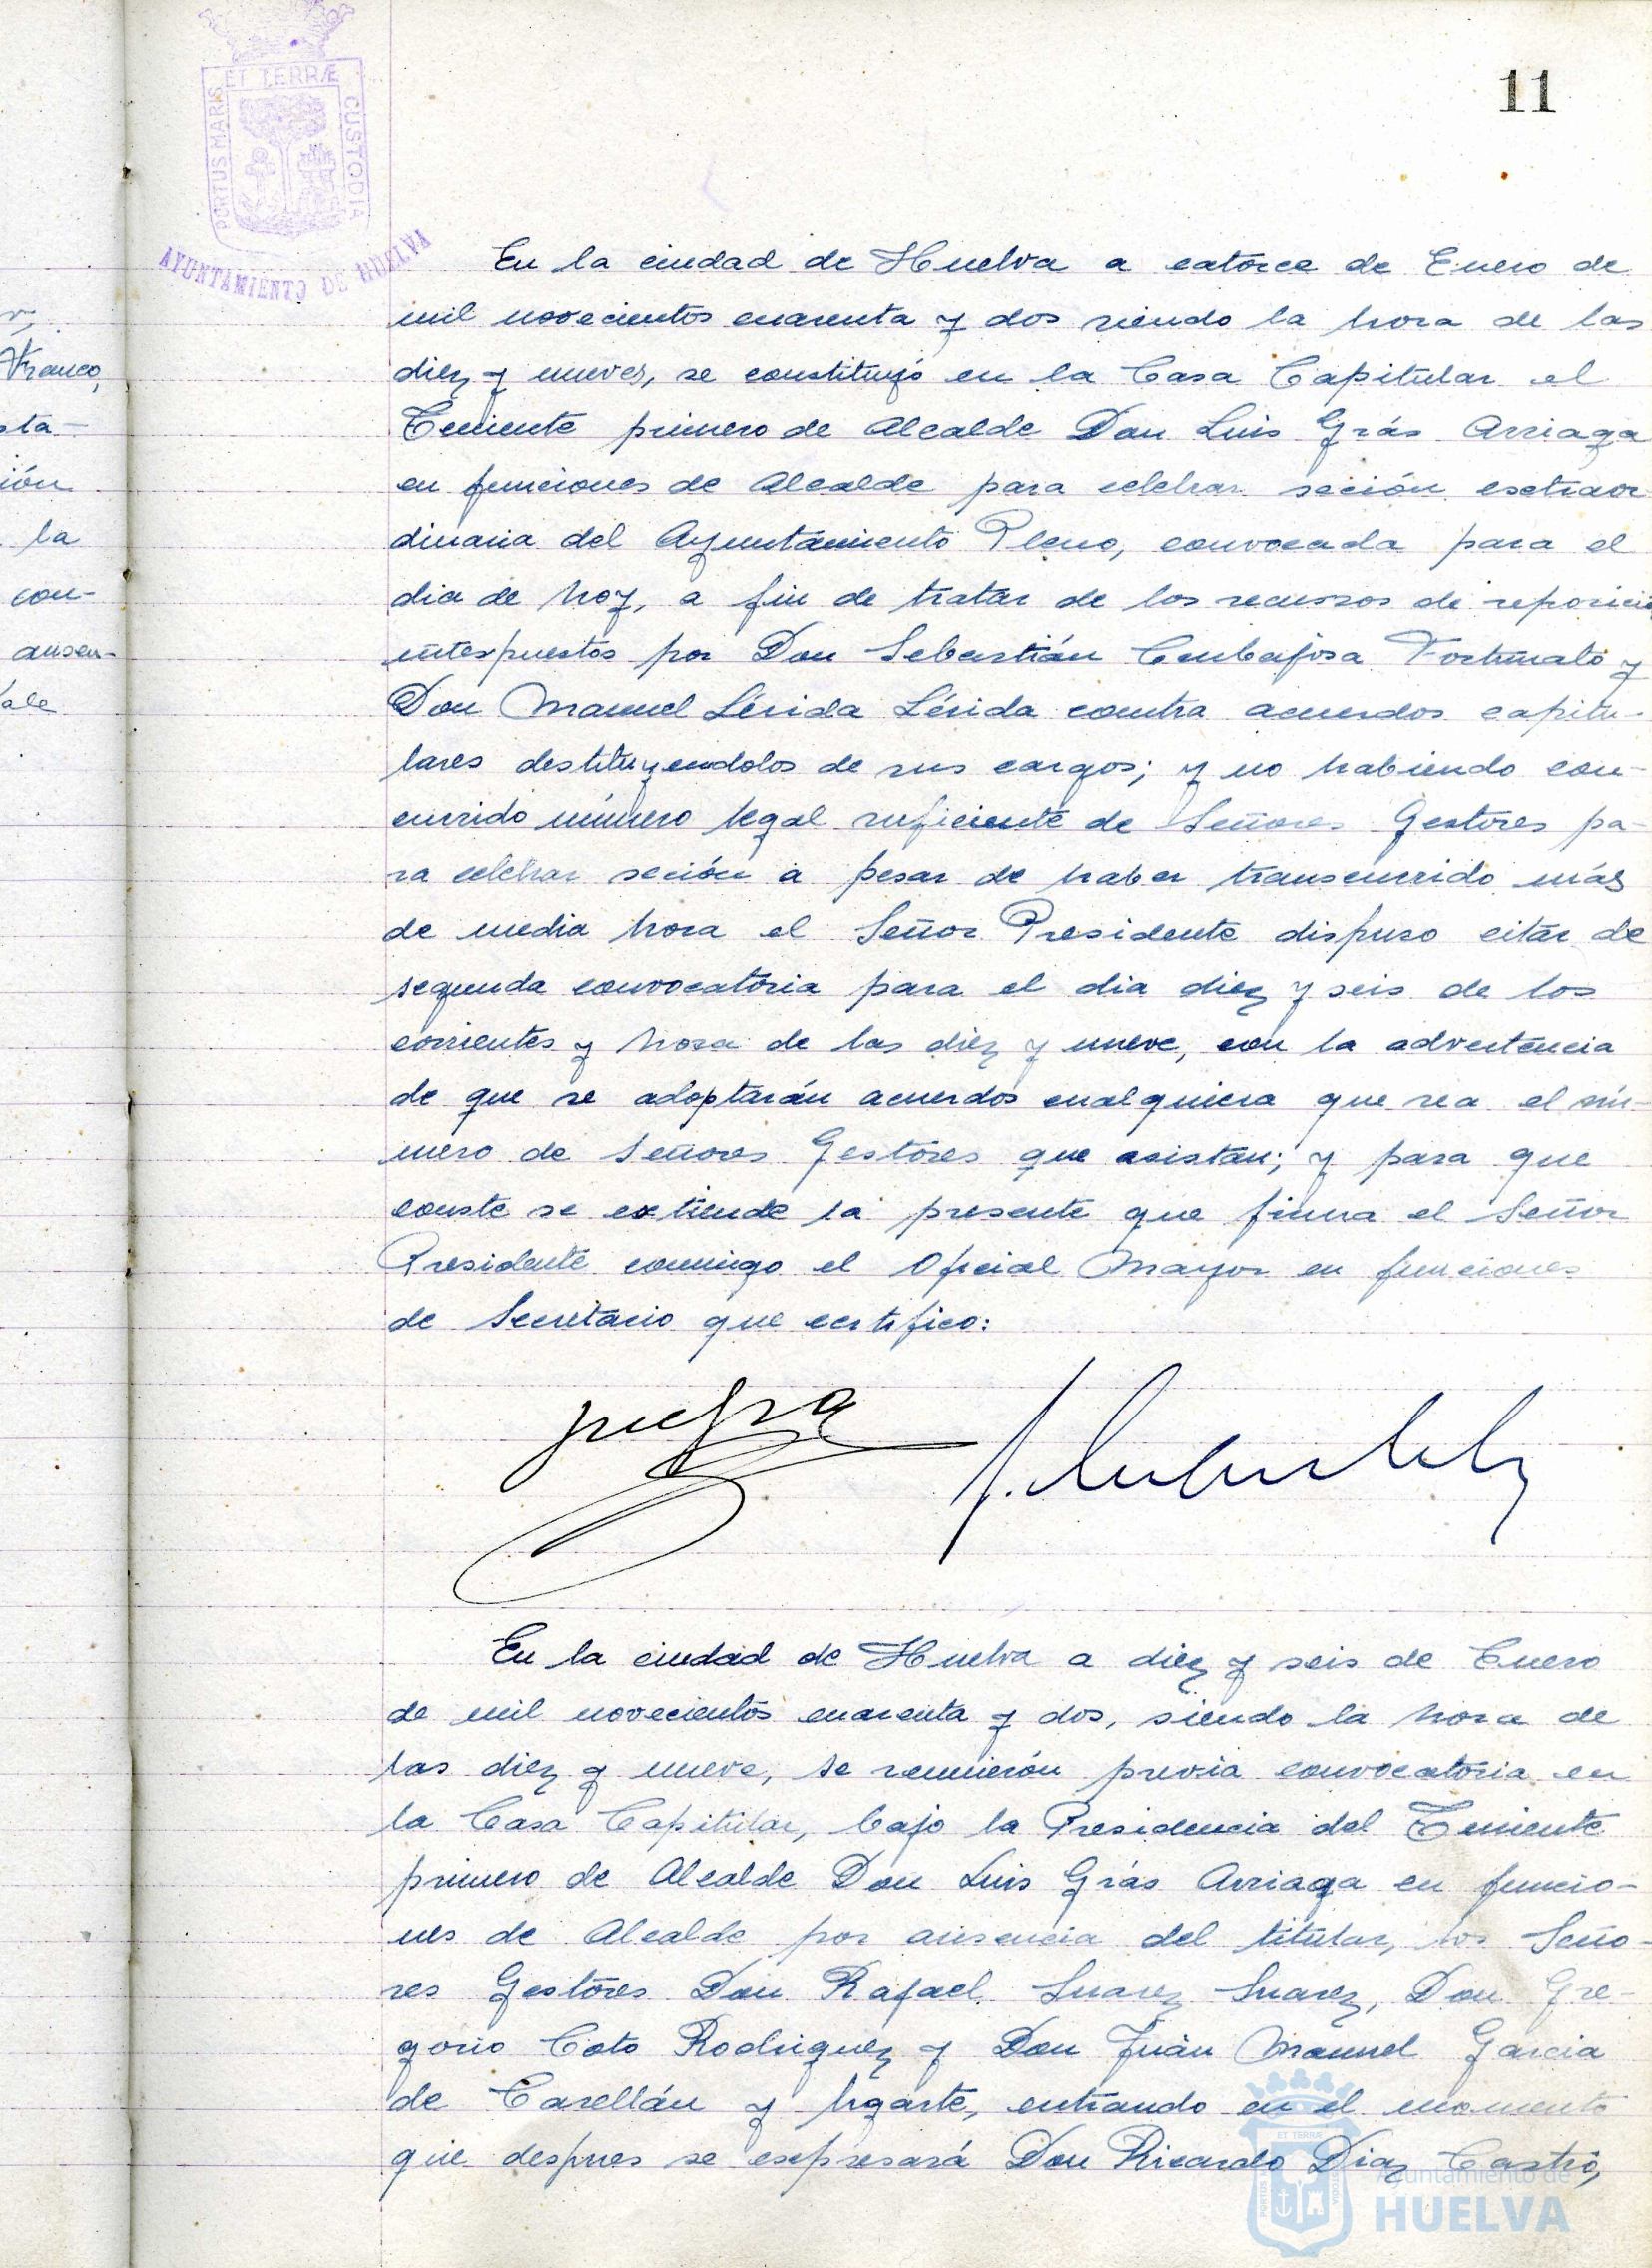 11
ET TERRÆ
PORTUS MARIS
CUSTODIA
AYUNTAMIENTO DE HUELVA
Franco,
sta-
ión
la
con-
ausen-
ale
En la ciudad de Huelva a catorce de Enero de
mil novecientos cuarenta y dos siendo la hora de las
diez y nueves, se constituyó en la Casa Capitular el
Teniente primero de Alcalde Don Luis Grás Arriaga
en funciones de Alcalde para celebrar seción esctraor-
dinaria del Ayuntamiento Pleno, convocada para el
dia de hoy, a fin de tratar de los recursos de reposició
interpuestos por Don Sebastián Carbajosa Fortunato y
Don Manuel Lérida Lérida contra acuerdos capitu-
lares destituyendolos de sus cargos; y no habiendo con-
currido número legal suficiente de Señores Gestores pa-
ra celebrar seción a pesar de haber transcurrido más
de media hora el Señor Presidente dispuso citar de
segunda convocatoria para el dia diez y seis de los
corrientes y hora de las diez y nueve, con la advertencia
de que se adoptarán acuerdos cualquiera que sea el nú-
mero de Señores Gestores que asistan; y para que
conste se extiende la presente que firma el Señor
Presidente conmigo el Oficial Mayor en funciones
de Secretario que certifico:
En la ciudad de Huelva a diez y seis de Enero
de mil novecientos cuarenta y dos, siendo la hora de
las diez y nueve, se reunierón previa convocatoria en
la Casa Capitular, bajo la Presidencia del Teniente
primero de Alcalde Don Luis Grás Arriaga en funcio-
nes de Alcalde por ausencia del titular, los Seño-
res Gestores Don Rafael Suarez Suarez, Don Gre-
gorio Coto Rodriguez y Don Juan Manuel Garcia
de Casellán y Ugarte, entrando en el momento
que despues se esepresará Don Ricardo Diaz Castro,
ET TERRÆ
Ayuntamiento de
HUELVA